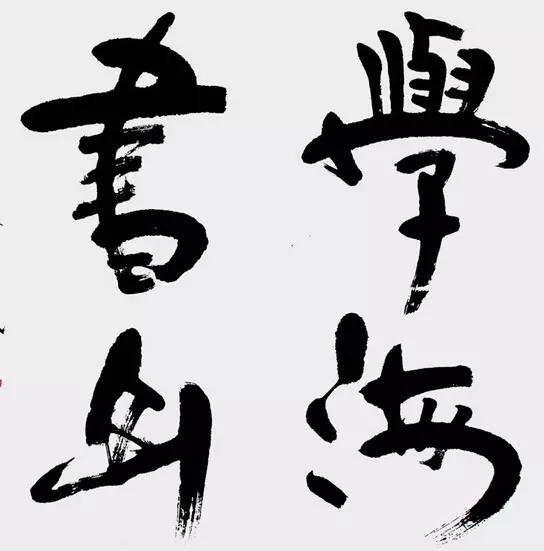 學海
書山